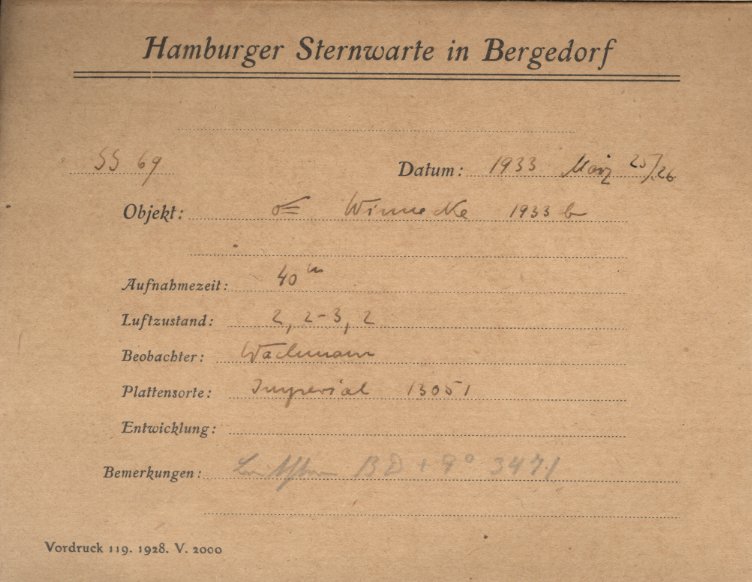 Hamburger Sternwarte in Bergedorf
SS 69 Datum: 1933 März 25/26
Objekt: ☄ Winnecke 1933 b
Aufnahmezeit: 40 m
Luftzustand: 2, 2-3, 2
Beobachter: Wachmann
Plattensorte: Imperial 13051
Entwicklung:
Bemerkungen: Leitstern BD + 9° 3471
Vordruck 119. 1928. V. 2000